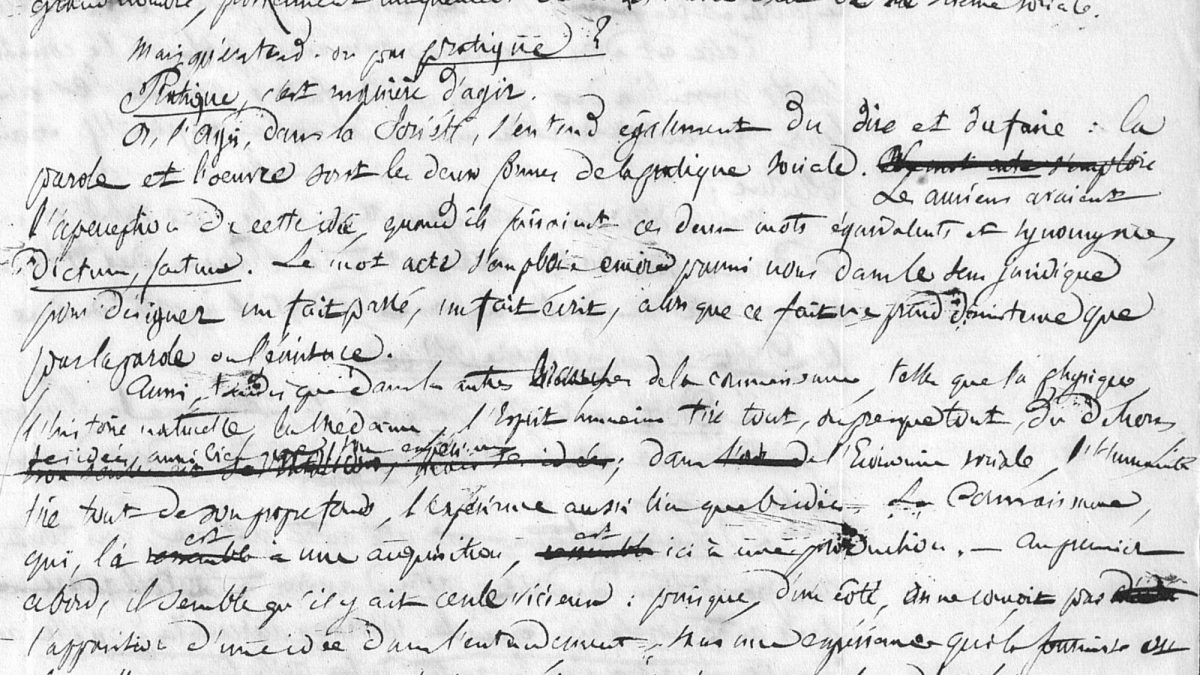 sociale.
Mais qu'entend-on par pratique ?
Pratique, c'est manière d'agir.
Or, l'Agir, dans la Société, s'entend également du dire et du faire : la
parole et l'oeuvre sont les deux formes de la pratique sociale.
Les anciens avaient
l'aperception de cette idée, quand ils faisaient ces deux mots équivalents et synonymes,
dictum, factum. Le mot acte s'emploie encore parmi nous dans le sens juridique
pour désigner un fait parlé, un fait écrit, alors que ce fait ne prend d'existence que
par la parole ou l'écriture.
Aussi, tandis que dans les autres branches de la connaissance, telles que la physique,
l'histoire naturelle, la médecine, l'Esprit humain tire tout, ou presque tout, du dehors,
ses idées aussi bien que son expérience ; dans de l'Economie sociale, l'Humanité
tire tout de son propre fonds, l'expérience aussi bien que les idées. La Connaissance,
qui, là est une acquisition, est ici une production. — Au premier
abord, il semble qu'il y ait cercle vicieux : puisque, d'un côté, on ne conçoit pas
l'apparition d'une idée dans l'entendement sans une expérience qui la fournisse